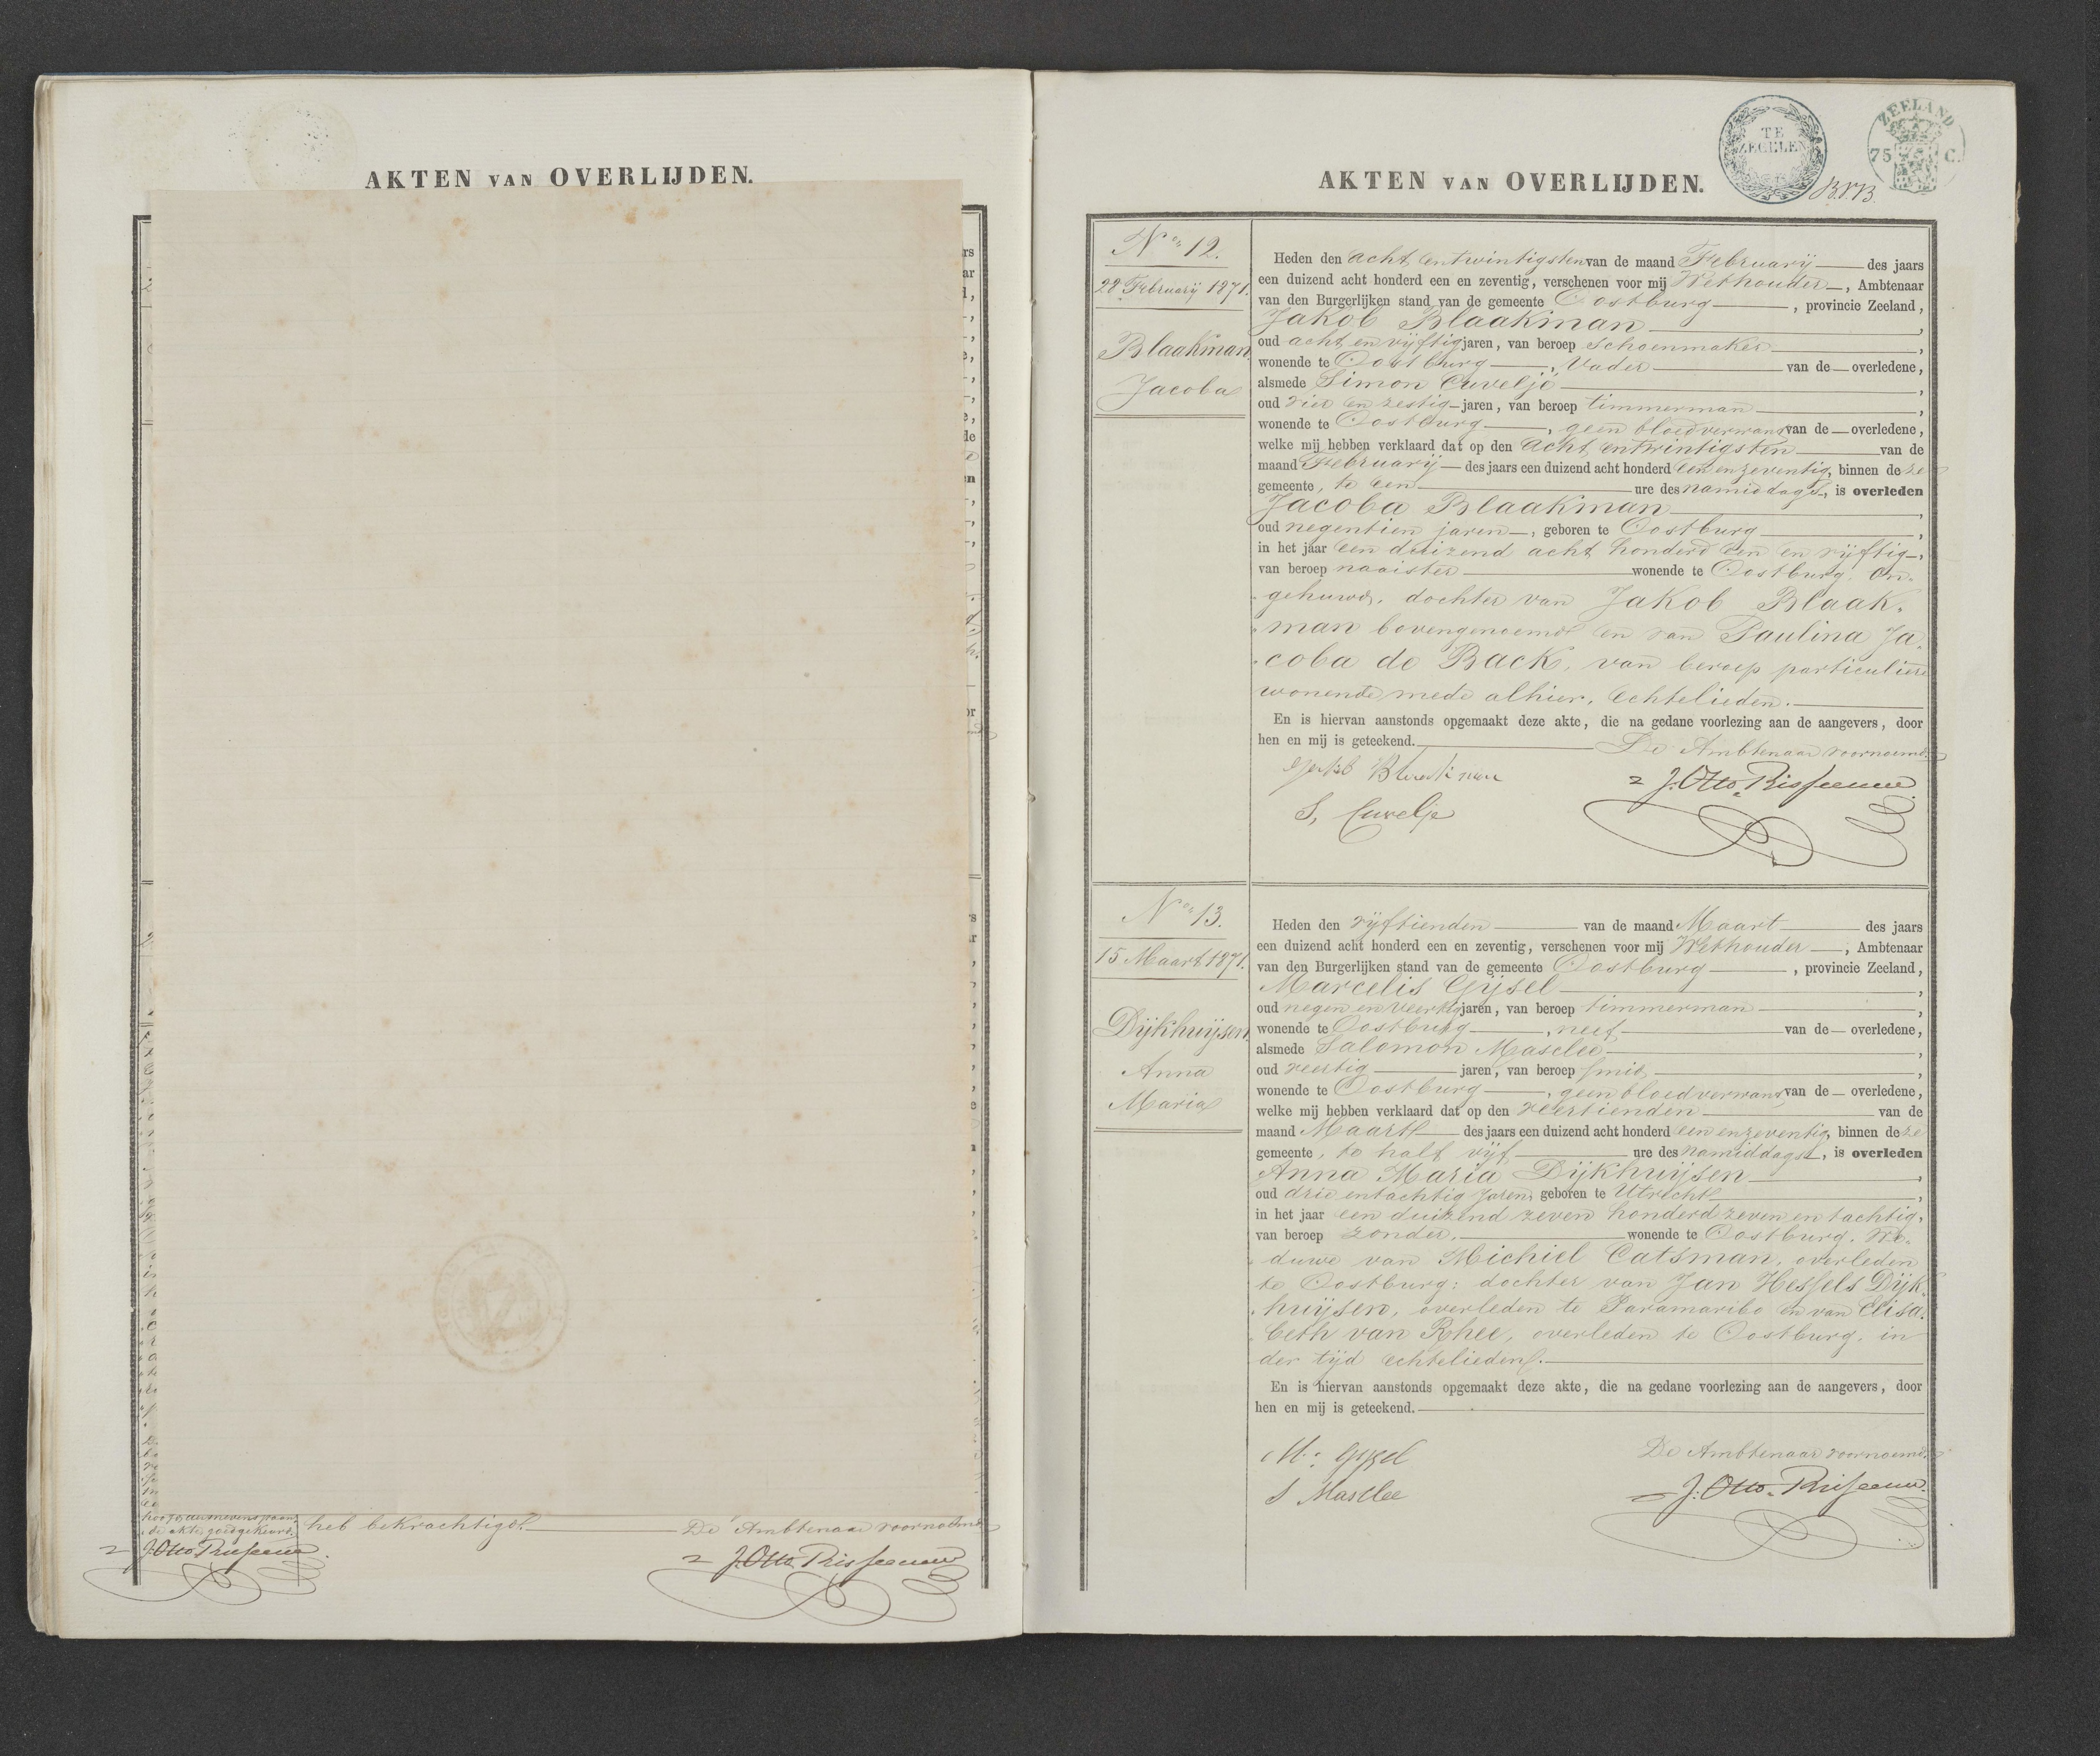 AKTEN VAN OVERLIJDEN.
heb bekrachtigd.
De Ambtenaar voornoemd
de akte goedgekeurd.
J. Otto Risseeuw
J. Otto Risseeuw
TE
ZEGELEN
ZEELAND
75 C.
AKTEN VAN OVERLIJDEN.
No 12.
28 Februarij 1871.
Blaakman
Jacoba
Heden den acht en twintigsten van de maand Februarij des jaars
een duizend acht honderd een en zeventig, verschenen voor mij Wethouder, Ambtenaar
van den Burgerlijken stand van de gemeente Oostburg, provincie Zeeland,
Jakob Blaakman,
oud acht en vijftig jaren, van beroep schoenmaker,
wonende te Oostburg, Vader van de overledene,
alsmede Simon Cuveljé,
oud vier en zestig jaren, van beroep timmerman,
wonende te Oostburg, geen bloedverwant van de overledene,
welke mij hebben verklaard dat op den acht en twintigsten van de
maand Februarij des jaars een duizend acht honderd een en zeventig, binnen deze
gemeente, te een ure des namiddags, is overleden
Jacoba Blaakman,
oud negentien jaren, geboren te Oostburg,
in het jaar een duizend acht honderd een en vijftig,
van beroep naaister wonende te Oostburg, on-
gehuwd, dochter van Jakob Blaak-
man bovengenoemd en van Paulina Ja-
coba de Back, van beroep particuliere
wonende mede alhier, Echtelieden.
En is hiervan aanstonds opgemaakt deze akte, die na gedane voorlezing aan de aangevers, door
hen en mij is geteekend.
De Ambtenaar voornoemd
Jakob Blaakman
J. Otto Risseeuw
S. Cuvelje
No 13.
15 Maart 1871.
Dijkhuijsen
Anna
Maria
Heden den vijftienden van de maand Maart des jaars
een duizend acht honderd een en zeventig, verschenen voor mij Wethouder, Ambtenaar
van den Burgerlijken stand van de gemeente Oostburg, provincie Zeeland,
Marcelis Gijsel,
oud negen en veertig jaren, van beroep timmerman,
wonende te Oostburg, neef van de overledene,
alsmede Salomon Masclee,
oud veertig jaren, van beroep smid,
wonende te Oostburg, geen bloedverwant van de overledene,
welke mij hebben verklaard dat op den veertienden van de
maand Maart des jaars een duizend acht honderd een en zeventig, binnen deze
gemeente, te half vijf ure des namiddags, is overleden
Anna Maria Dijkhuijsen,
oud drie en tachtig jaren, geboren te Utrecht,
in het jaar een duizend zeven honderd zeven en tachtig,
van beroep zonder, wonende te Oostburg, We-
duwe van Michiel Catsman, overleden
te Oostburg; dochter van Jan Hessels Dijk-
huijsen, overleden te Paramaribo en van Elisa-
beth van Rhee, overleden te Oostburg, in
der tijd echtelieden.
En is hiervan aanstonds opgemaakt deze akte, die na gedane voorlezing aan de aangevers, door
hen en mij is geteekend.
De Ambtenaar voornoemd
M. Gijsel
J. Otto Risseeuw
S Masclee